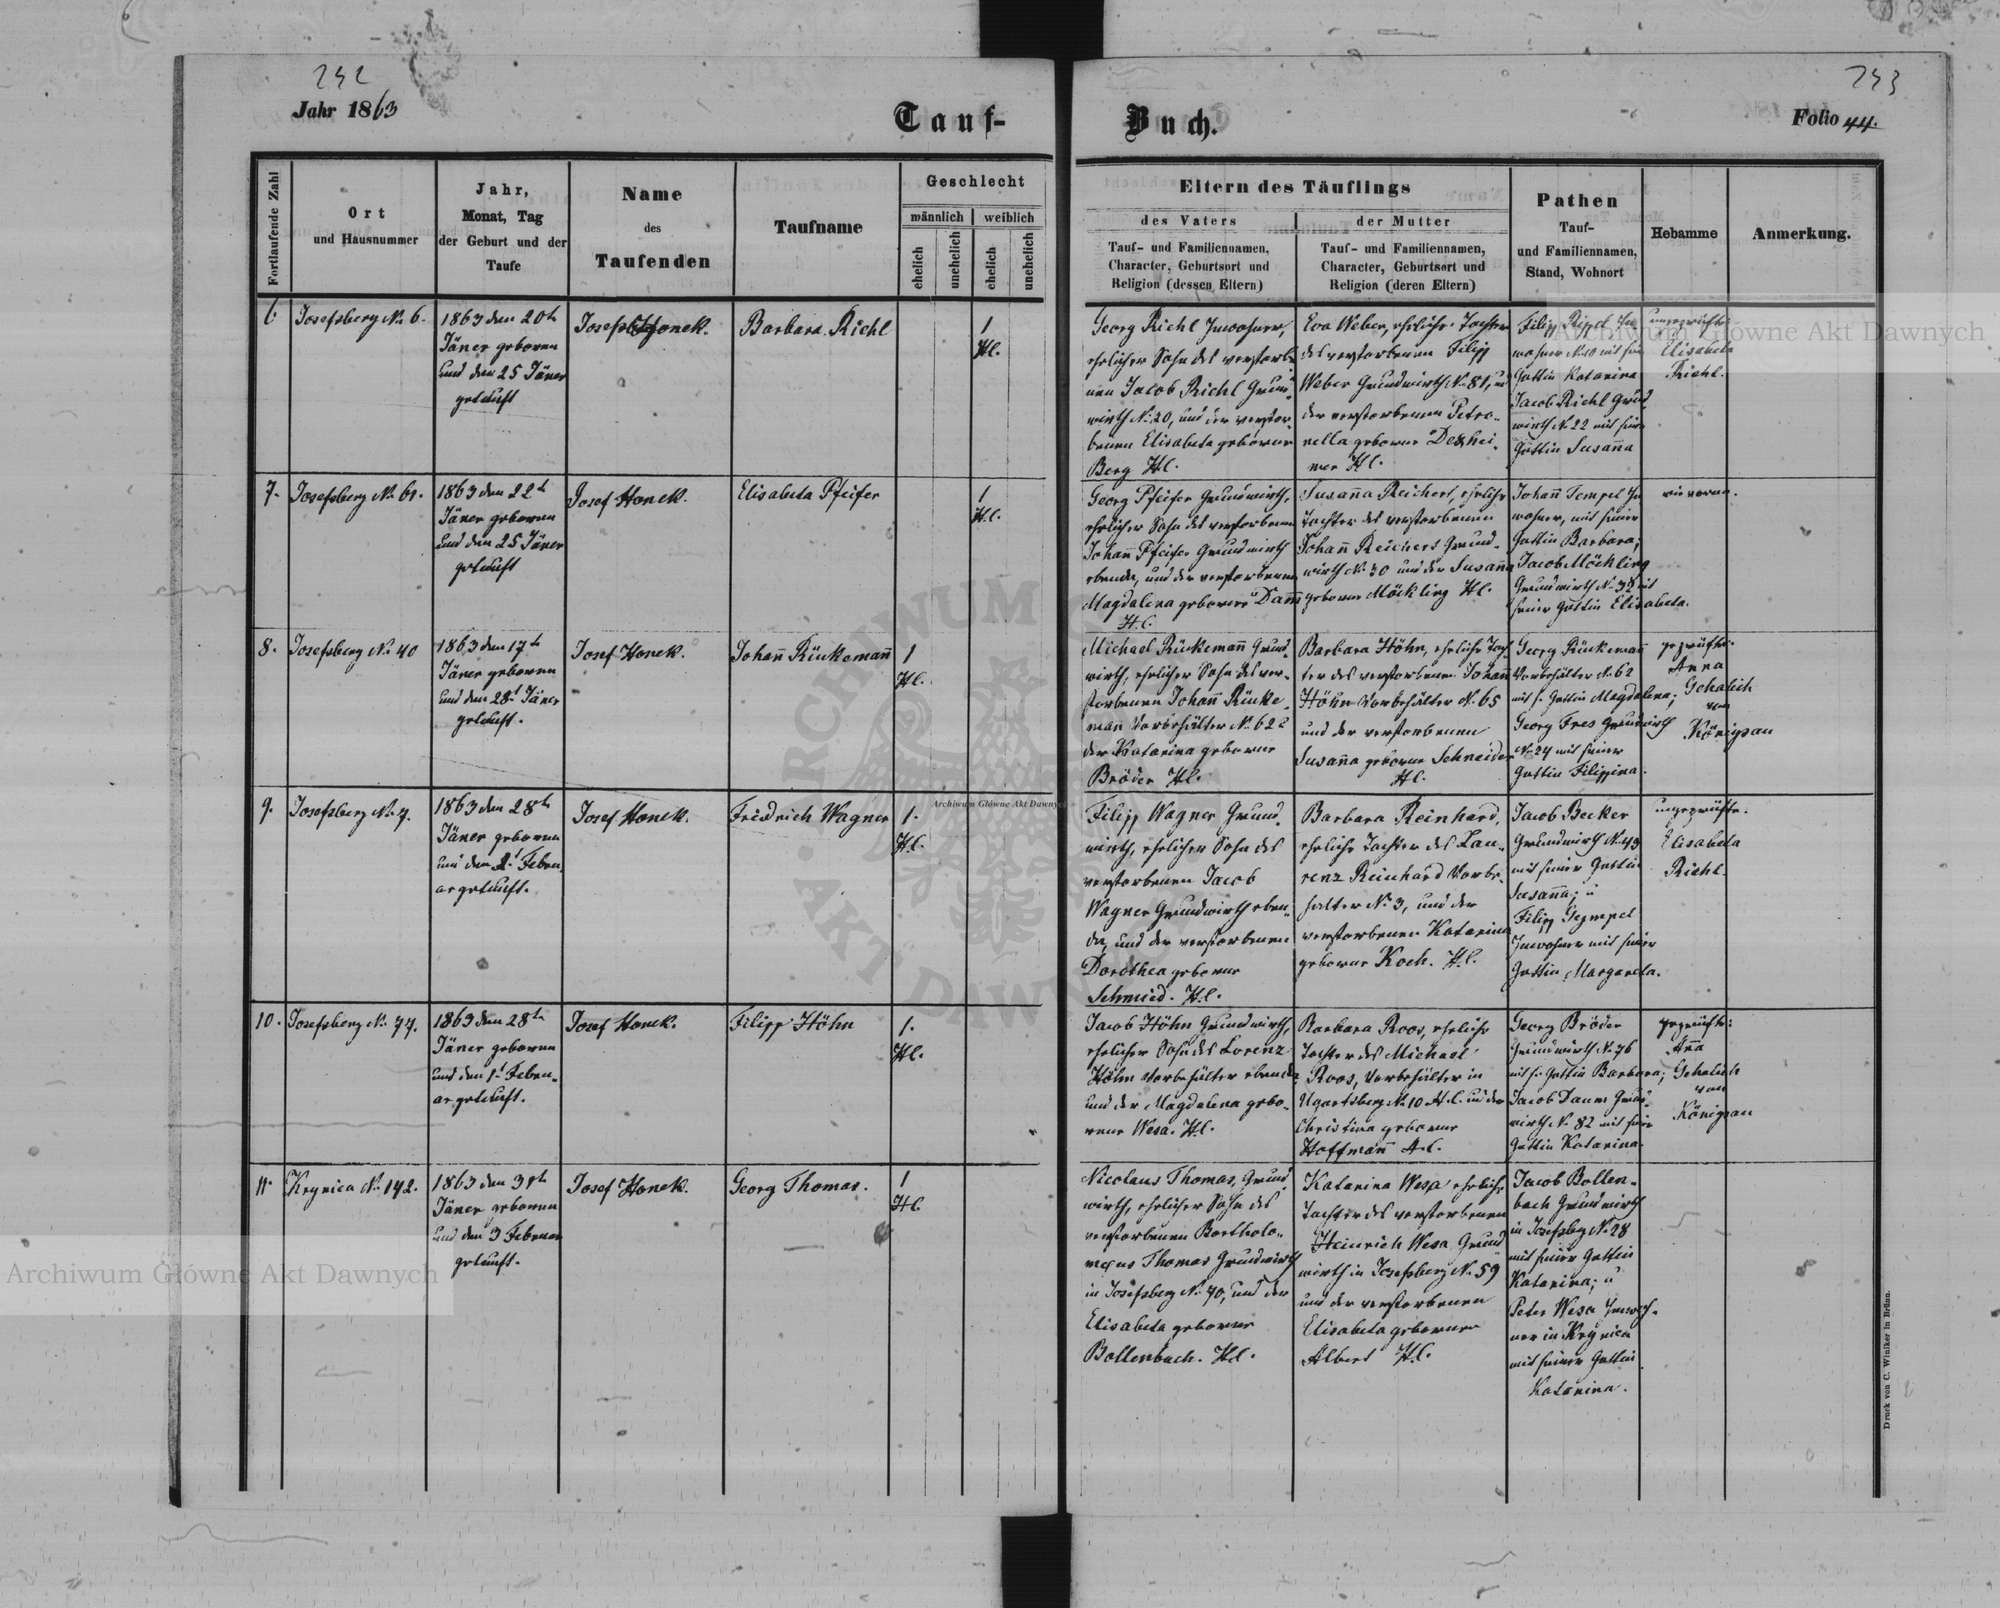 242
243
Jahr 1863
Tauf-
Buch.
Folio 44.
Fortlaufende Zahl
Ort
und Hausnummer
Jahr,
Monat, Tag
der Geburt und der
Taufe
Name
des
Taufenden
Taufname
Geschlecht
männlich
weiblich
ehelich
unehelich
ehelich
unehelich
Eltern des Täuflings
des Vaters
Tauf- und Familiennamen,
Character, Geburtsort und
Religion (dessen Eltern)
der Mutter
Tauf- und Familiennamen,
Character, Geburtsort und
Religion (deren Eltern)
Pathen
Tauf-
und Familiennamen,
Stand, Wohnort
Hebamme
Anmerkung.
6
Josefsberg No 6.
1863 den 20t
Jäner geboren
und den 25 Jäner
getauft
Josef Honek.
Barbara Richl
1
H.C.
Georg Richl Inwohner,
ehelicher Sohn des verstorbe-
nen Jacob Richl Grund-
wirth No 20, und der verstor-
benen Elisabeta geborne
Berg H.C.
Eva Weber, eheliche Tochter
des verstorbenen Filipp
Weber Grundwirth No 81, und
der verstorbenen Petro-
nella geborne
mer H.C.
Filipp Rippel In-
wohner No 10 mit sein
Gattin Katarina
Jacob Richl Grund-
wirth No 22 mit sein
Gattin Susanna
ungeprüfte
Elisabeta
Richl.
7.
Josefsberg No 61.
1863 den 22t
Jäner geboren
und den 25 Jäner
getauft
Josef Honek.
Elisabeta Pfeifer
1
H.C.
Georg Pfeifer Grundwirth,
ehelicher Sohn des verstorbenen
Johann Pfeifer Grundwirth
ebenda, und der verstorbenen
Magdalena geborne Damm
H.C.
Susanna Reichert, eheliche
Tochter des verstorbenen
Johann Reichert Grund-
wirth No 30 und der Susanna
geborne Möckling H.C.
Johann Tempel In-
wohner, mit seiner
Gattin Barbara;
Jacob Möckling
Grundwirth No 38 mit
seiner Gattin Elisabeta.
wie voran.
8.
Josefsberg No 40
1863 den 17t
Jäner geboren
und den 28t Jäner
getauft.
Josef Honek.
Johann Rückemann
1
H.C.
Michael Rückemann Grund-
wirth, ehelicher Sohn des ver-
storbenen Johann Rücke-
man Vorbehälter No 62 u
der Katarina geborne
Bröder H.C.
Barbara Höhn, eheliche Toch-
ter des verstorbenen Johann
Höhn Vorbehälter No 65
und der verstorbenen
Susanna geborne Schneider
H.C.
Georg Rückemann
Vorbehälter No 62
mit s. Gattin Magdalena;
Georg Fres Grundwirth
No 24 mit seiner
Gattin Filippina.
geprüfte:
Anna
Gehalich
von
Königsau
9.
Josefsberg No 7.
1863 den 28t
Jäner geboren
und den 1t Febru-
ar getauft.
Josef Honek.
Friedrich Wagner
1.
H.C.
Filipp Wagner Grund-
wirth, ehelicher Sohn des
verstorbenen Jacob
Wagner Grundwirth eben-
da, und der verstorbenen
Dorothea geborne
Schmied. H.C.
Barbara Reinhard,
eheliche Tochter des Lau-
renz Reinhard Vorbe-
hälter No 3, und der
verstorbenen Katarina
geborne Koch. H.C.
Jacob Becker
Grundwirth No 49
mit seiner Gattin
Susanna; u
Filipp Gempel
Inwohner mit seiner
Gattin Margareta.
ungeprüfte.
Elisabeta
Richl.
10.
Josefsberg No 77.
1863 den 28t
Jäner geboren
und den 1t Febru-
ar getauft.
Josef Honek.
Filipp Höhn
1.
H.C.
Jacob Höhn Grundwirth,
ehelicher Sohn des Lorenz
Höhn Vorbehälter ebenda
und der Magdalena gebo-
rene Wesa. H.C.
Barbara Roos, eheliche
Tochter des Michael
Roos, Vorbehälter in
Ugartsberg No 10 A.C. und der
Christina geborne
Hoffmann A.C.
Georg Bröder
Grundwirth No 76
mit s. Gattin Barbara;
Jacob Daum Grund-
wirth No 82 mit sein
Gattin Katarina.
geprüfte:
Anna
Gehalich
von
Königsau
11.
Krynica No 142.
1863 den 31t
Jäner geboren
und den 3 Februar
getauft.
Josef Honek.
Georg Thomas.
1
H.C.
Nicolaus Thomas, Grund-
wirth, ehelicher Sohn des
verstorbenen Bartholo-
meus Thomas Grundwirth
in Josefsberg No 70, und der
Elisabeta geborne
Bollenbach. H.C.
Katarina Wesa eheliche
Tochter des verstorbenen
Heinrich Wesa Grund-
wirth in Josefsberg No 59
und der verstorbenen
Elisabeta geborner
Albert H.C.
Jacob Bollen-
bach Grundwirth
in Josefsbg No 28
mit seiner Gattin
Katarina; u
Peter Wesa Inwoh-
ner in Krynica
mit seiner Gattin
Katarina.
Druck von C. Winiker in Brünn.
Archiwum Główne Akt Dawnych
Archiwum Główne Akt Dawnych
Archiwum Główne Akt Dawnych
ARCHIWUM
AKT DAWNYCH